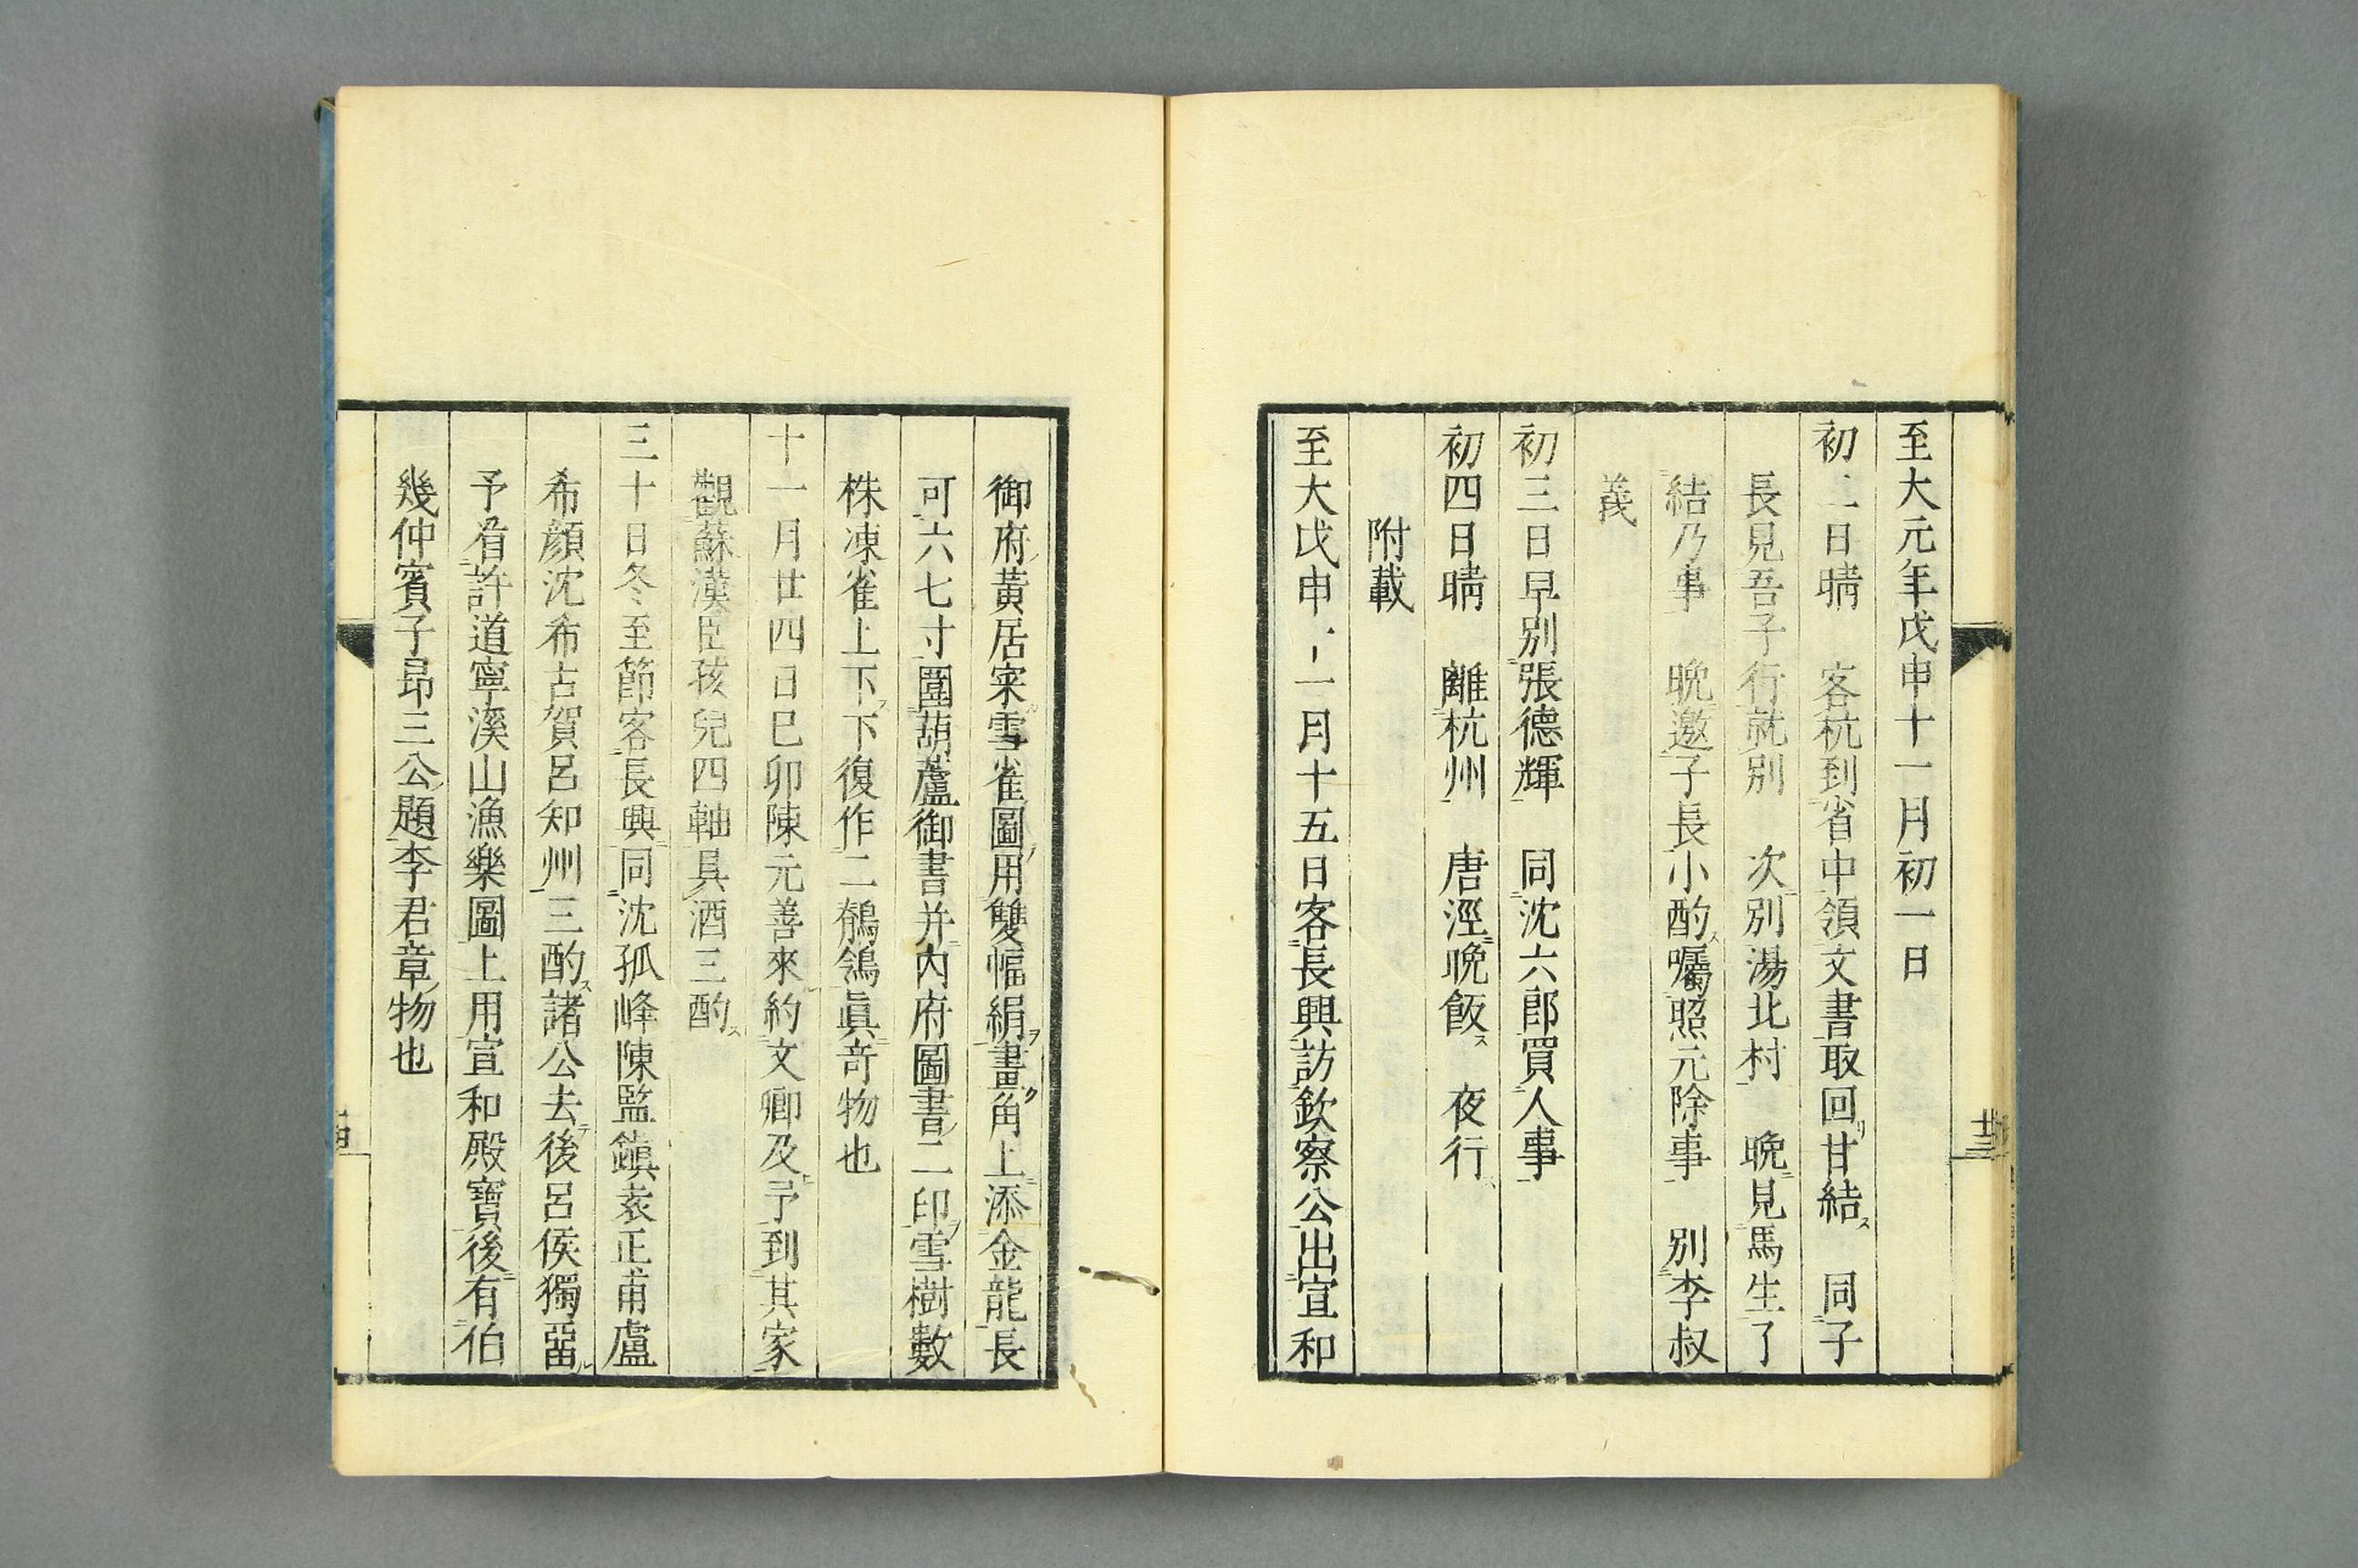 至大元年戊申十一月初一日
初二日晴　客杭到省中領文書取回甘結　同子
長見吾子行就別　次別湯北村　晩見馬生了
結乃事　晩邀子長小酌囑照元除事　別李叔
義
初三日早別張德輝　同沈六郎買人事
初四日晴　離杭州　唐涇晩飯　夜行
附載
至大戊申十一月十五日客長興訪欽察公出宣和
御府黃居寀雪雀圖用雙幅絹畫角上添金龍長
可六七寸圍葫蘆御書并內府圖書二印雪樹數
株凍雀上下下復作二鵓鴿眞竒物也
十一月廿四日巳卯陳元善來約文卿及予到其家
觀蘇漢臣孩兒四軸具酒三酌
三十日冬至節客長興同沈孤峰陳監鎮袁正甫盧
希顔沈希古賀呂知州三酌諸公去後呂侯獨畱
予㸔許道寧溪山漁樂圖上用宣和殿寶後有伯
幾仲賓子昂三公題李君章物也
廿三